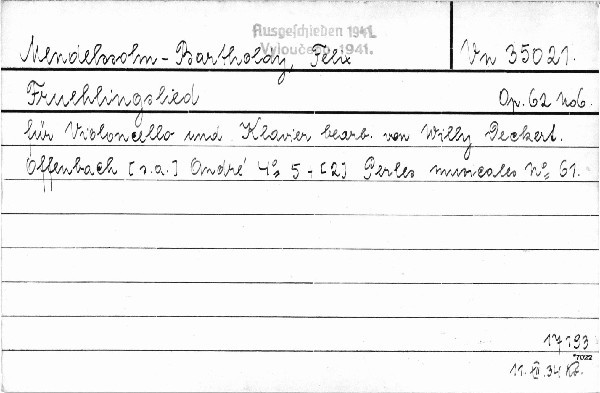 Ausgeschieden 1941.
Vyloučeno 1941.
Mendelssohn-Bartholdy, Felix
Vn 35021.
Fruehlingslied
Op. 62 No 6.
für Violoncello und Klavier bearb. von Willy Deckert.
Offenbach [s.a.] André 4º 5-[2] Perles musicales Nº 61.
17193
*7022
11. XII. 34